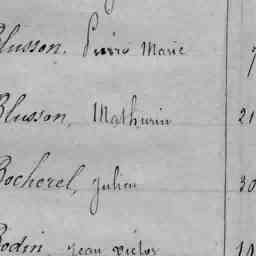 Blusson, Pierre Marie 7
Blusson, Mathurin 21
Bocherel, Julien 30
Bodin, Jean Victor